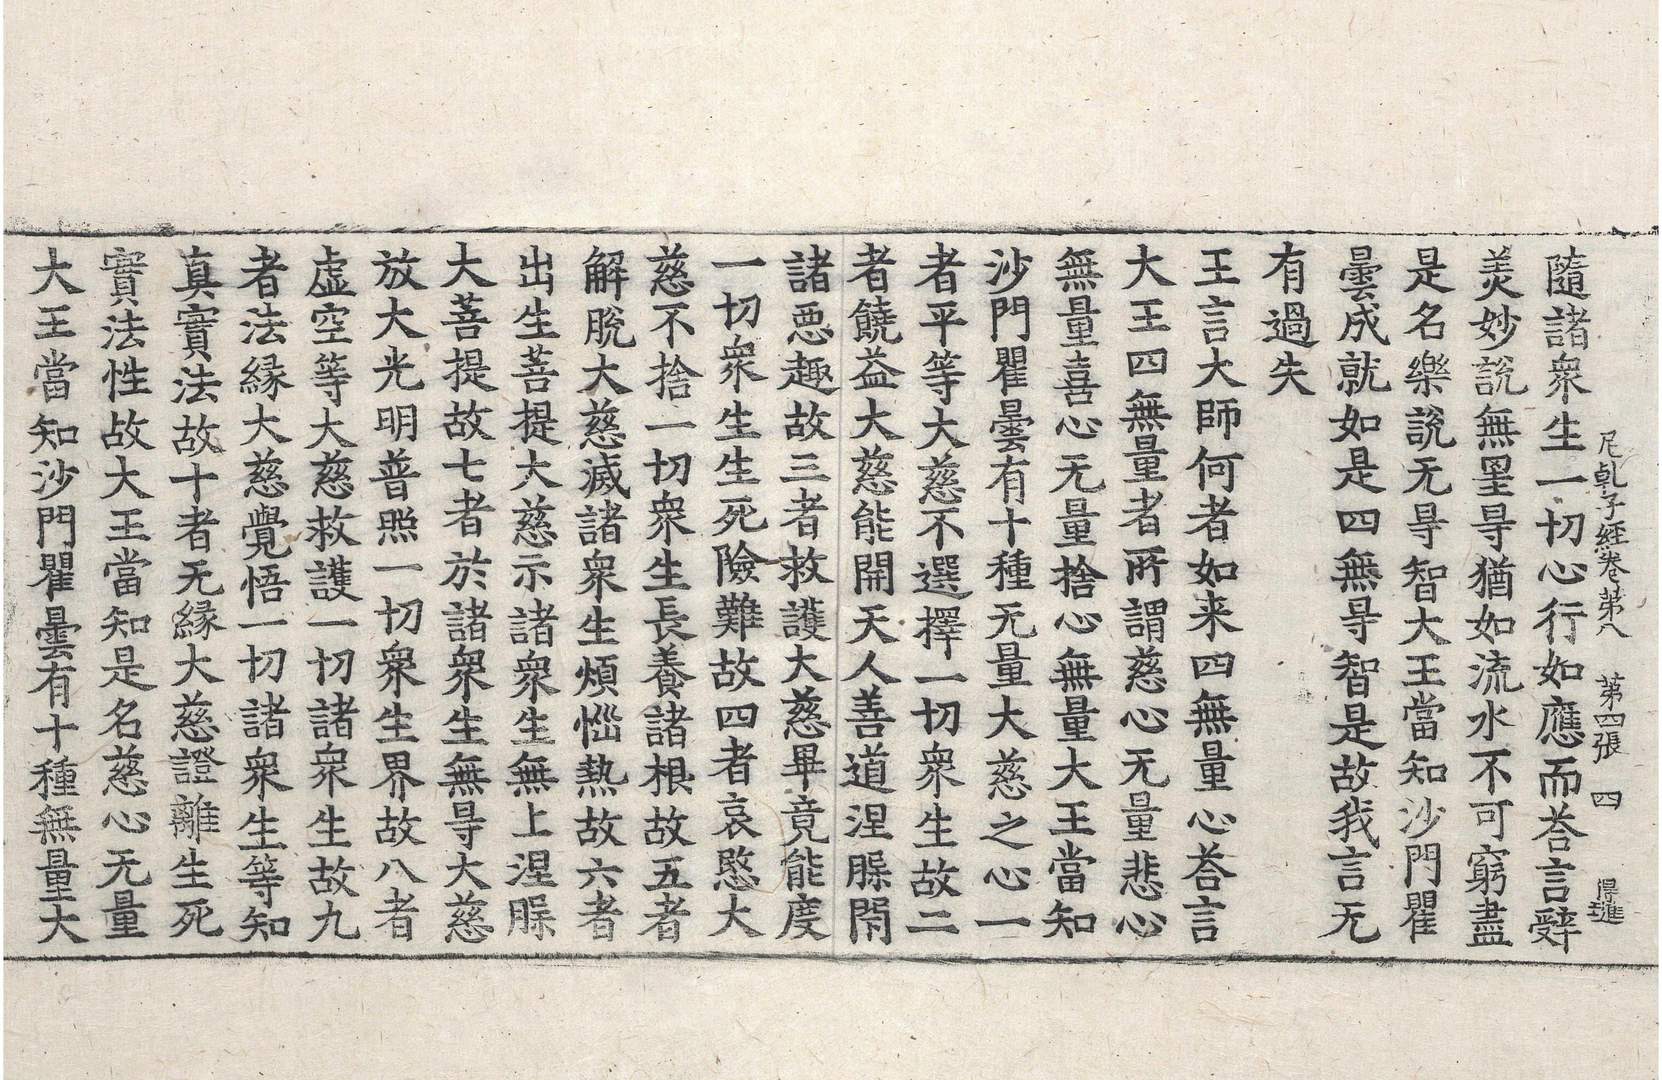 尼乹子經卷第八　第四張　四　得進
隨諸衆生一切心行如應而荅言辝
美妙說無罣㝵猶如流水不可窮盡
是名樂說无㝵智大王當知沙門瞿
曇成就如是四無㝵智是故我言无
有過失
王言大師何者如来四無量心荅言
大王四無量者所謂慈心无量悲心
無量喜心无量捨心無量大王當知
沙門瞿曇有十種无量大慈之心一
者平等大慈不選擇一切衆生故二
者饒益大慈能開天人善道涅槃閇
諸惡趣故三者救護大慈畢竟能度
一切衆生生死險難故四者哀愍大
慈不捨一切衆生長養諸根故五者
解脫大慈滅諸衆生煩惱熱故六者
出生菩提大慈示諸衆生無上涅槃
大菩提故七者於諸衆生無㝵大慈
放大光明普照一切衆生界故八者
虛空等大慈救護一切諸衆生故九
者法緣大慈覺悟一切諸衆生等知
真實法故十者无緣大慈證離生死
實法性故大王當知是名慈心无量
大王當知沙門瞿曇有十種無量大